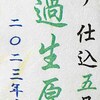 仕込五
過生原
二〇二三年